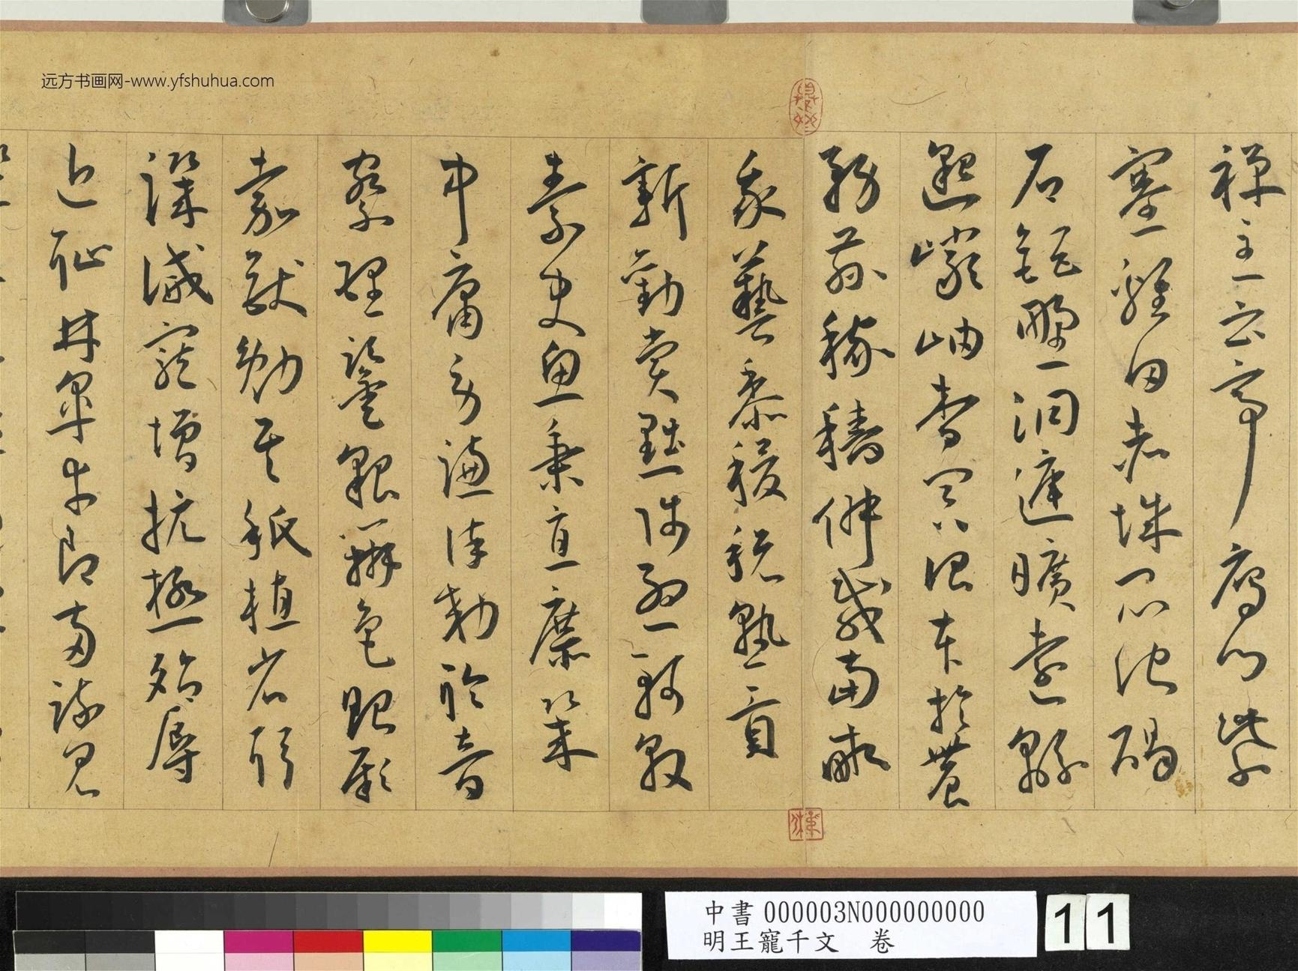 远方书画网-www.yfshuhua.com
禪主云亭雁門紫
塞雞田赤城昆池碣
石鉅野洞庭曠遠綿
邈巖岫杳冥治本於農
務茲稼穡俶載南畝
我藝黍稷稅熟貢
新勸賞黜陟孟軻敦
素史魚秉直庶幾
中庸勞謙謹敕聆音
察理鑒貌辨色貽厥
嘉猷勉其祗植省躬
譏誡寵增抗極殆辱
近恥林皋幸即兩疏見
中書 000003N000000000
明王寵千文 卷
11